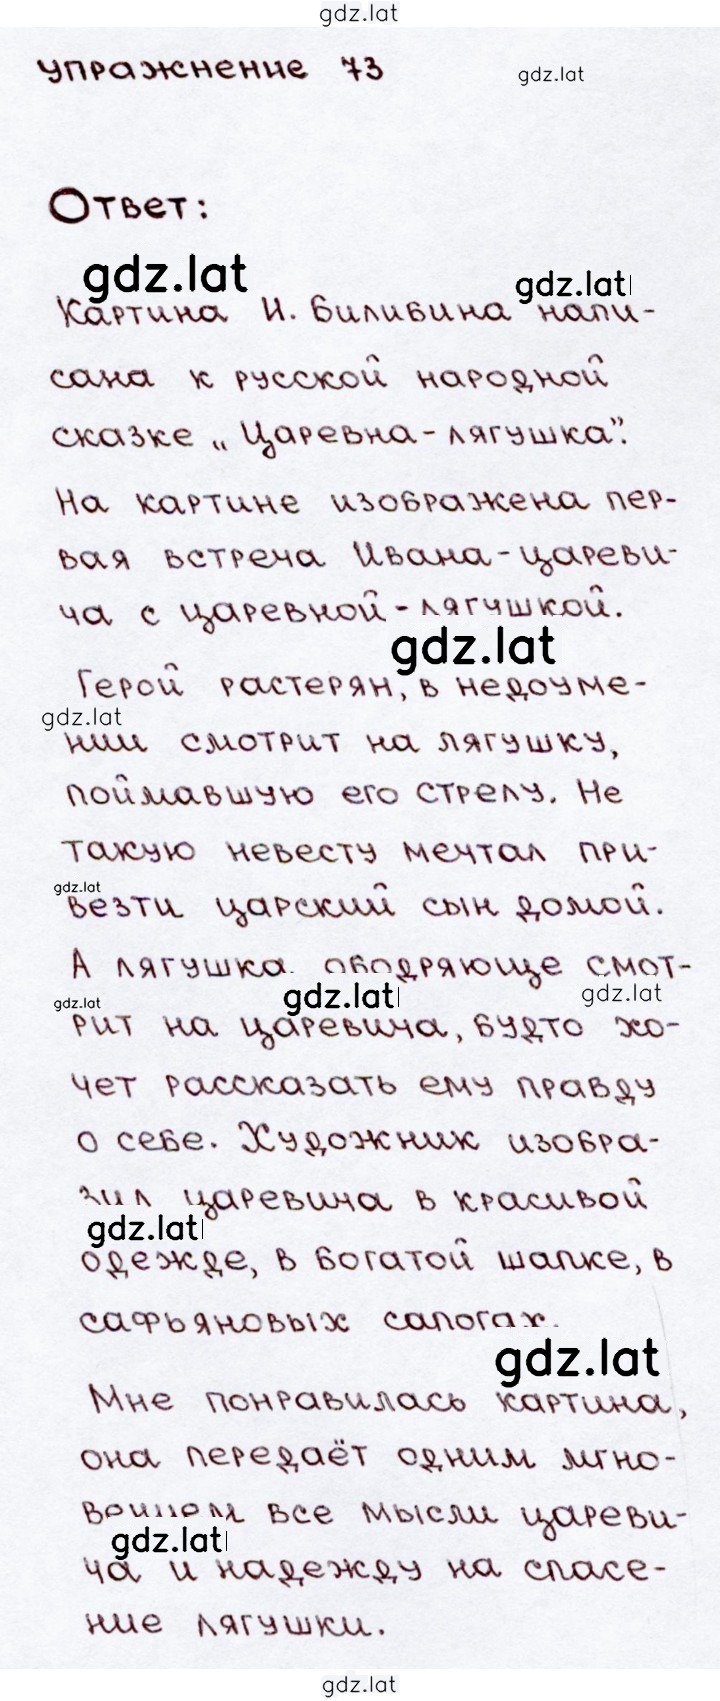 gdz.lat
упражнение 73
gdz.lat
Ответ:
gdz.lat
gdz.lat
Картина И. Билибина напи-
сана к русской народной
сказке „Царевна-лягушка".
На картине изображена пер-
вая встреча Ивана-цареви-
ча с царевной-лягушкой.
gdz.lat
Герой растерян, в недоуме-
gdz.lat
нии смотрит на лягушку,
поймавшую его стрелу. Не
такую невесту мечтал при-
gdz.lat
везти царский сын домой.
А лягушка ободряюще смот-
gdz.lat
gdz.lat
gdz.lat
рит на царевича, будто хо-
чет рассказать ему правду
о себе. Художник изобра-
зил царевича в красивой
gdz.lat
одежде, в богатой шапке, в
сафьяновых сапогах.
gdz.lat
Мне понравилась картина,
она передаёт одним мгно-
вением все мысли цареви-
gdz.lat
ча и надежду на спасе-
ние лягушки.
gdz.lat